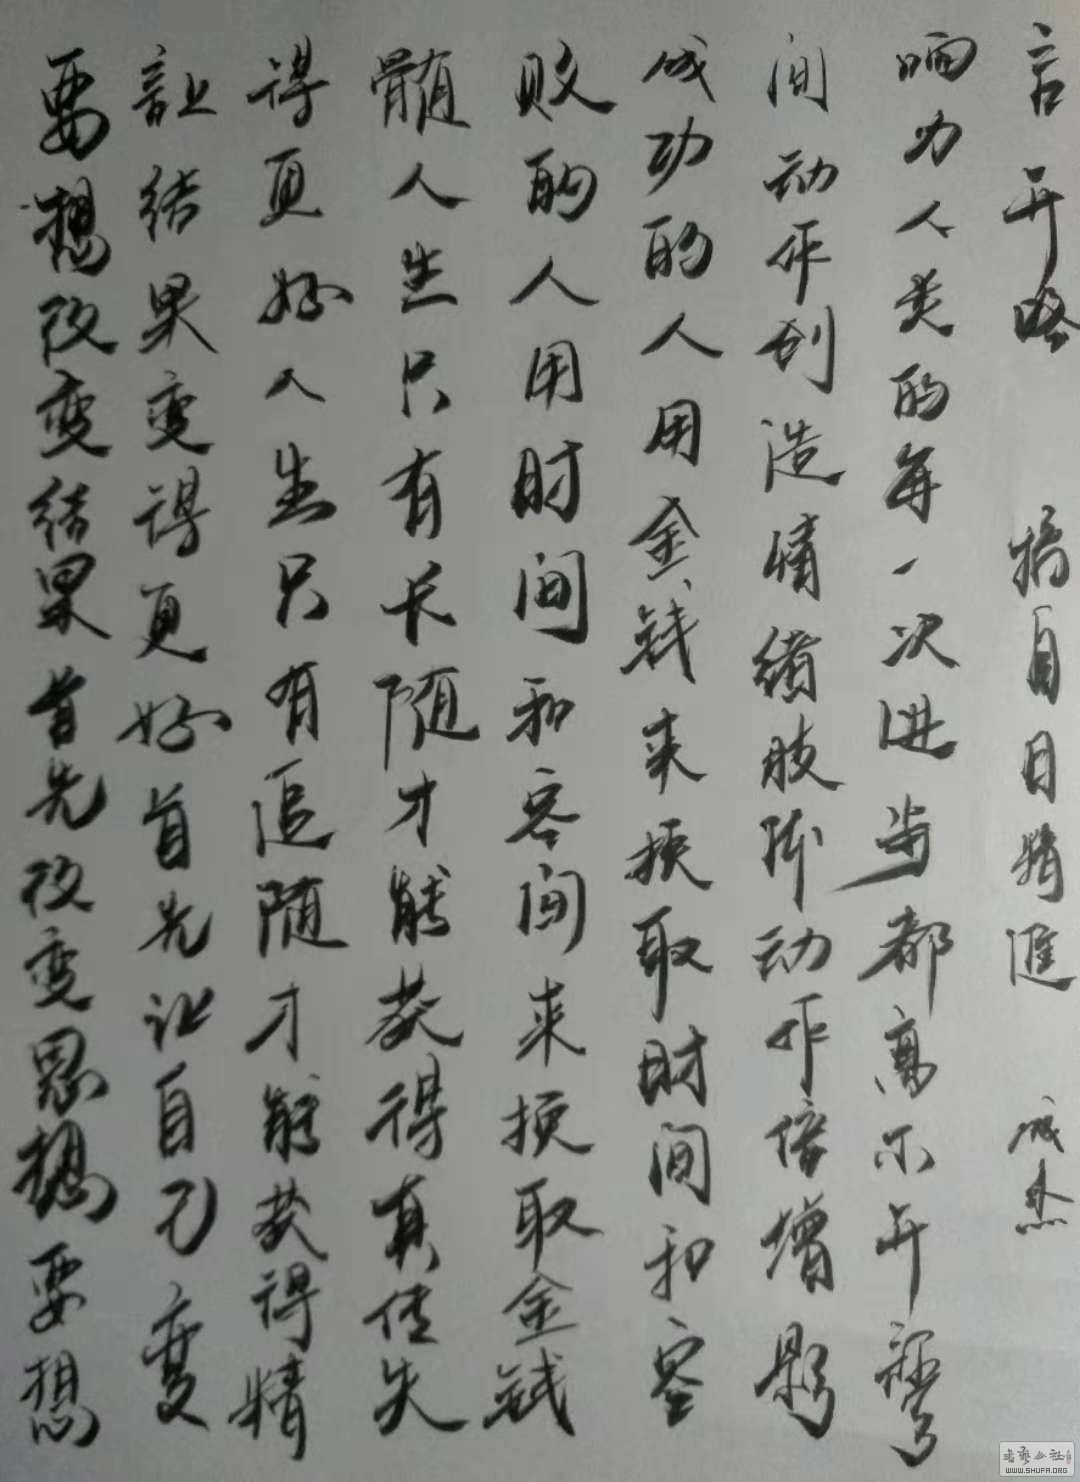 要想改变结果首先改变思想要想
让结果变得更好首先让自己变
得更好人生只有追随才能获得精
髓人生只有长随才能获得真传失
败的人用时间和空间来换取金钱
成功的人用金钱来换取时间和空
间动作创造情绪肢体动作倍增影
响力人类的每一次进步都离不开
言开路 摘自日精进 成杰
书艺公社
WWW.SHUFA.ORG